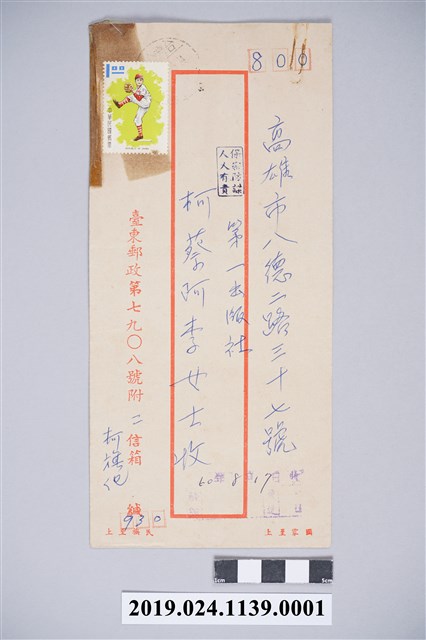 800
高雄市八德二路三十七號
第一出版社
保密防諜
人人有責
柯蔡阿李女士收
60 8 17
1.00
中華民國郵票
臺東郵政第七九〇八號附二信箱
柯旗化
緘
930
國家至上
民族至上
5cm
2019.024.1139.0001